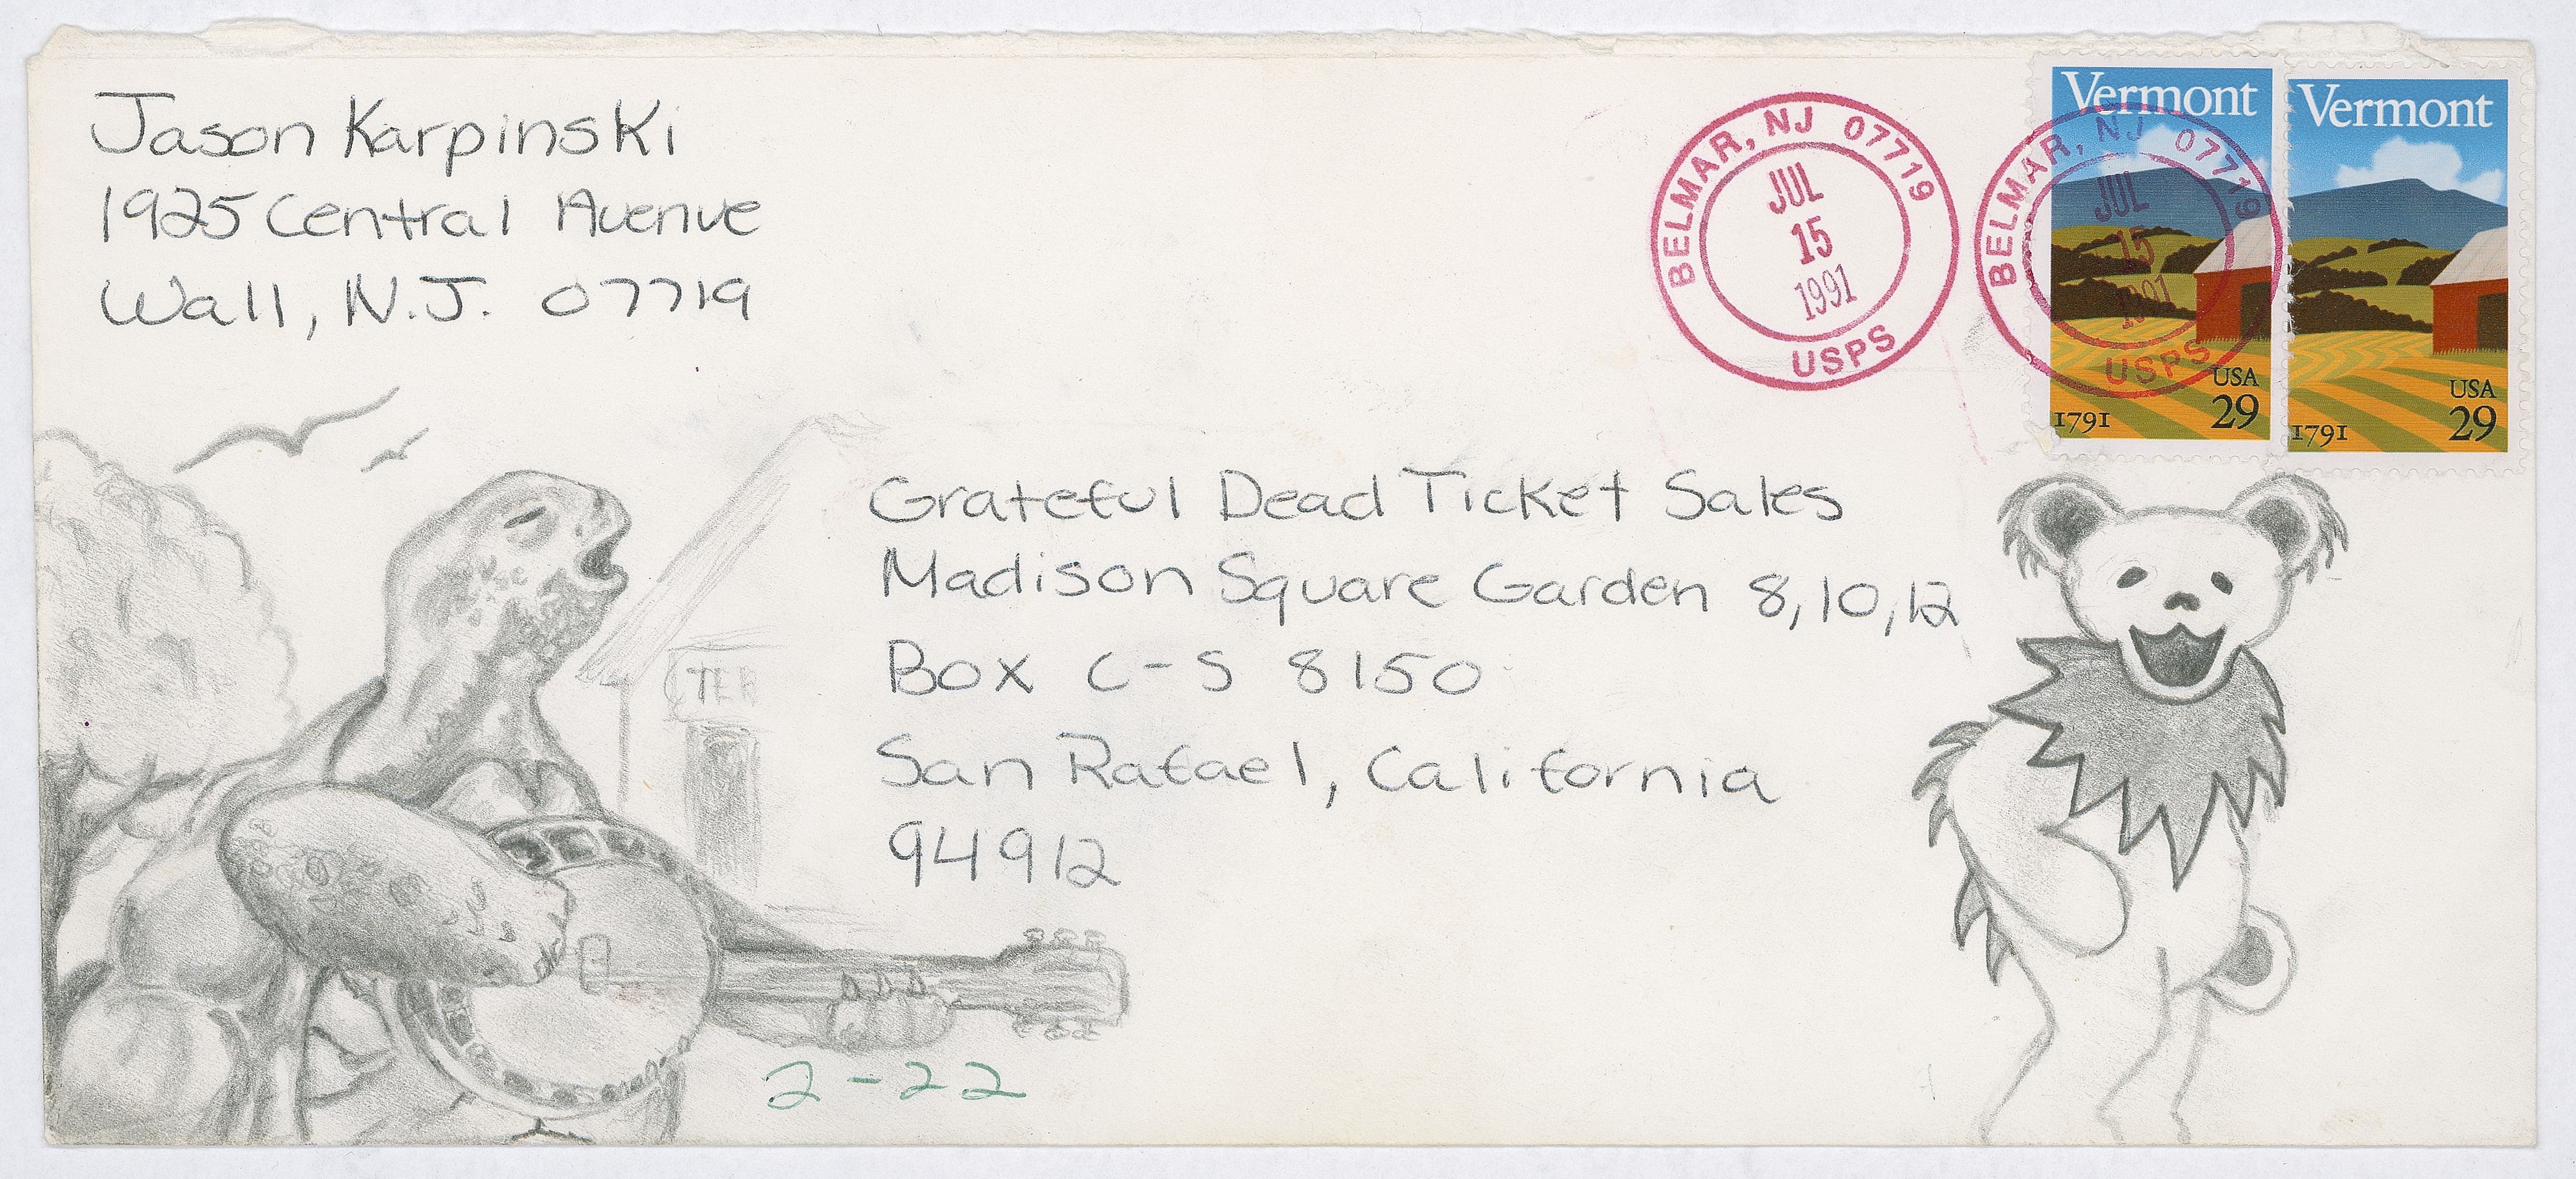 Jason Karpinski
1925 Central Avenue
Wall, N.J. 07719
BELMAR, NJ 07719
JUL
15
1991
USPS
BELMAR, NJ 07719
JUL
15
1991
USPS
Vermont
1791
USA
29
Vermont
1791
USA
29
Grateful Dead Ticket Sales
Madison Square Garden 8,10,12
Box C-S 8150
San Rafael, California
94912
TER
2-22